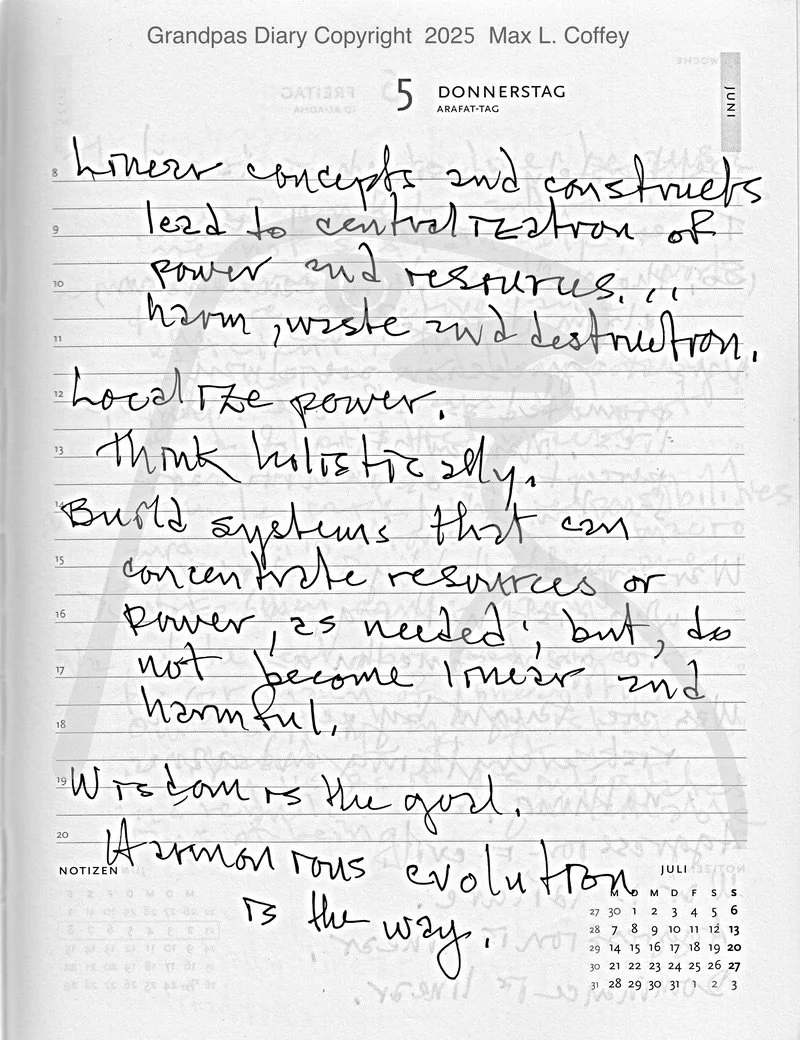 Grandpas Diary Copyright 2025 Max L. Coffey
5 DONNERSTAG
ARAFAT-TAG
JUNI
8 Linear concepts and constructs
9 lead to centralization of
10 power and resources...
harm, waste and destruction.
11
12 Localize power.
13 Think holistically.
14 Build systems that can
15 concentrate resources or
16 power, as needed; but, do
17 not become linear and
18 harmful.
19 Wisdom is the goal.
20 Harmonious evolution
is the way.
NOTIZEN
JULI
M D M D F S S
27 30 1 2 3 4 5 6
28 7 8 9 10 11 12 13
29 14 15 16 17 18 19 20
30 21 22 23 24 25 26 27
31 28 29 30 31 1 2 3